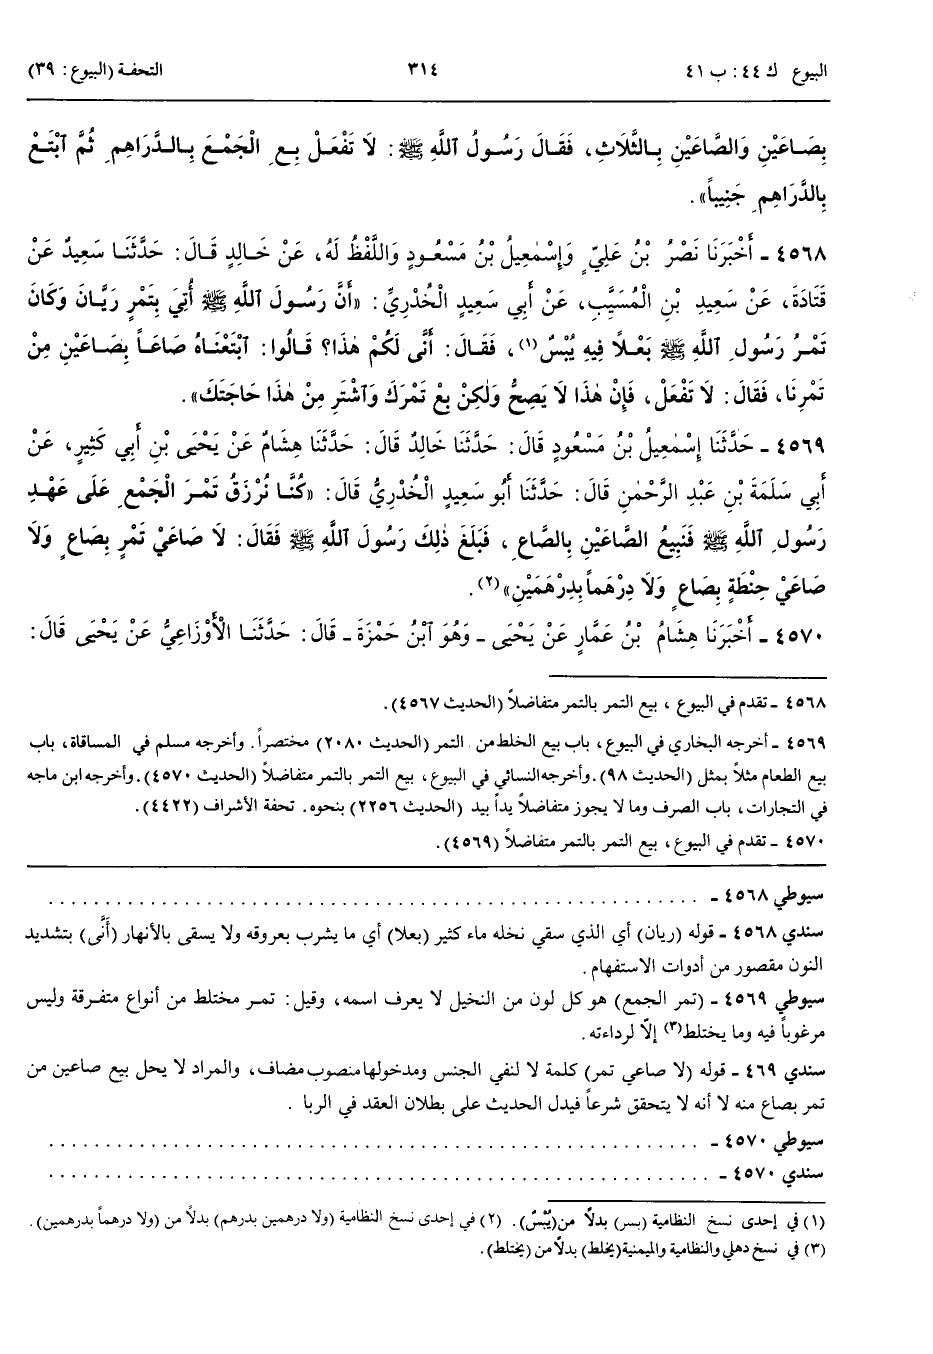 البيوع ك ٤٤: ب ٤١ ٣١٤ التحفة (البيوع: ٣٩)
بِصَاعَيْنِ وَالصَّاعَيْنِ بِالثَّلَاثِ، فَقَالَ رَسُولُ ٱللَّهِ ﷺ: لَا تَفْعَلْ بِعِ الْجَمْعَ بِالدَّرَاهِمِ ثُمَّ ٱبْتَعْ
بِالدَّرَاهِمِ جَنِيباً».
٤٥٦٨ ـ أَخْبَرَنَا نَصْرُ بْنُ عَلِيٍّ وَإِسْمٰعِيلُ بْنُ مَسْعُودٍ وَاللَّفْظُ لَهُ، عَنْ خَالِدٍ قَالَ: حَدَّثَنَا سَعِيدٌ عَنْ
قَتَادَةَ، عَنْ سَعِيدِ بْنِ الْمُسَيَّبِ، عَنْ أَبِي سَعِيدٍ الْخُدْرِيِّ: «أَنَّ رَسُولَ ٱللَّهِ ﷺ أُتِيَ بِتَمْرٍ رَيَّانَ وَكَانَ
تَمْرُ رَسُولِ ٱللَّهِ ﷺ بَعْلًا فِيهِ يُبْسٌ(١)، فَقَالَ: أَنَّى لَكُمْ هٰذَا؟ قَالُوا: ٱبْتَعْنَاهُ صَاعاً بِصَاعَيْنِ مِنْ
تَمْرِنَا، فَقَالَ: لَا تَفْعَلْ، فَإِنَّ هٰذَا لَا يَصِحُّ وَلٰكِنْ بِعْ تَمْرَكَ وَٱشْتَرِ مِنْ هٰذَا حَاجَتَكَ».
٤٥٦٩ ـ حَدَّثَنَا إِسْمٰعِيلُ بْنُ مَسْعُودٍ قَالَ: حَدَّثَنَا خَالِدٌ قَالَ: حَدَّثَنَا هِشَامٌ عَنْ يَحْيَى بْنِ أَبِي كَثِيرٍ، عَنْ
أَبِي سَلَمَةَ بْنِ عَبْدِ الرَّحْمٰنِ قَالَ: حَدَّثَنَا أَبُو سَعِيدٍ الْخُدْرِيُّ قَالَ: «كُنَّا نُرْزَقُ تَمْرَ الْجَمْعِ عَلَى عَهْدِ
رَسُولِ ٱللَّهِ ﷺ فَنَبِيعُ الصَّاعَيْنِ بِالصَّاعِ، فَبَلَغَ ذٰلِكَ رَسُولَ ٱللَّهِ ﷺ فَقَالَ: لَا صَاعَيْ تَمْرٍ بِصَاعٍ وَلَا
صَاعَيْ حِنْطَةٍ بِصَاعٍ وَلَا دِرْهَماً بِدِرْهَمَيْنِ»(٢).
٤٥٧٠ ـ أَخْبَرَنَا هِشَامُ بْنُ عَمَّارٍ عَنْ يَحْيَى ـ وَهُوَ ٱبْنُ حَمْزَةَ ـ قَالَ: حَدَّثَنَا الْأَوْزَاعِيُّ عَنْ يَحْيَى قَالَ:
٤٥٦٨ ـ تقدم في البيوع، بيع التمر بالتمر متفاضلاً (الحديث ٤٥٦٧).
٤٥٦٩ ـ أخرجه البخاري في البيوع، باب بيع الخلط من التمر (الحديث ٢٠٨٠) مختصراً. وأخرجه مسلم في المساقاة، باب
بيع الطعام مثلاً بمثل (الحديث ٩٨). وأخرجه النسائي في البيوع، بيع التمر بالتمر متفاضلاً (الحديث ٤٥٧٠). وأخرجه ابن ماجه
في التجارات، باب الصرف وما لا يجوز متفاضلاً يداً بيد (الحديث ٢٢٥٦) بنحوه. تحفة الأشراف (٤٤٢٢).
٤٥٧٠ ـ تقدم في البيوع، بيع التمر بالتمر متفاضلاً (٤٥٦٩).
سيوطي ٤٥٦٨ ـ . . . . . . . . . . . . . . . . . . . .
سندي ٤٥٦٨ ـ قوله (ريان) أي الذي سقي نخله ماء كثير (بعلا) أي ما يشرب بعروقه ولا يسقى بالأنهار (أَنَّى) بتشديد
النون مقصور من أدوات الاستفهام.
سيوطي ٤٥٦٩ ـ (تمر الجمع) هو كل لون من النخيل لا يعرف اسمه، وقيل: تمر مختلط من أنواع متفرقة وليس
مرغوباً فيه وما يختلط(٣) إلّا لرداءته.
سندي ٤٦٩ ـ قوله (لا صاعي تمر) كلمة لا لنفي الجنس ومدخولها منصوب مضاف، والمراد لا يحل بيع صاعين من
تمر بصاع منه لا أنه لا يتحقق شرعاً فيدل الحديث على بطلان العقد في الربا .
سيوطي ٤٥٧٠ ـ . . . . . . . . . . . . . . . . . . . .
سندي ٤٥٧٠ ـ . . . . . . . . . . . . . . . . . . . .
(١) في إحدى نسخ النظامية (بسر) بدلاً من (يُبْسٌ). (٢) في إحدى نسخ النظامية (ولا درهمين بدرهم) بدلاً من (ولا درهماً بدرهمين).
(٣) في نسخ دهلي والنظامية والميمنية (يخلط) بدلاً من (يختلط).